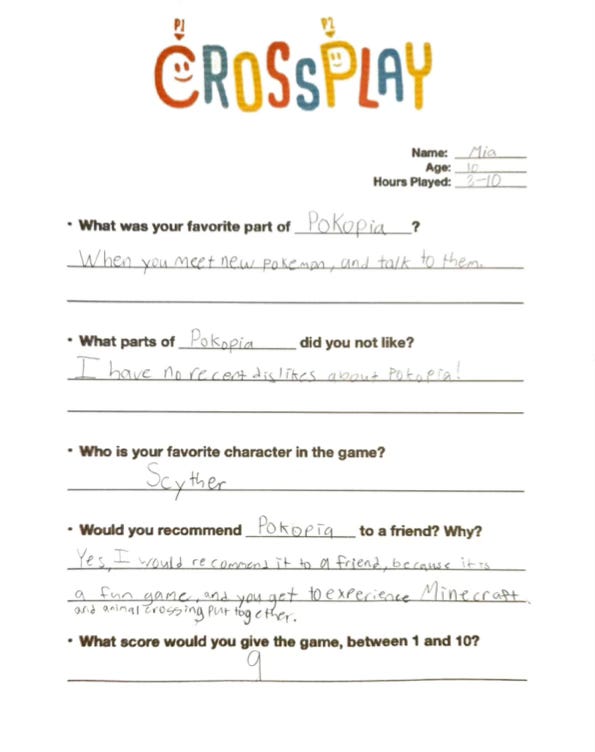 P1 P2
CROSSPLAY
Name: Mia
Age: 10
Hours Played: 3-10
• What was your favorite part of Pokopia?
When you meet new pokemon, and talk to them.
• What parts of Pokopia did you not like?
I have no recent dislikes about Pokopia!
• Who is your favorite character in the game?
Scyther
• Would you recommend Pokopia to a friend? Why?
Yes, I would recommend it to a friend, because it is
a fun game, and you get to experience Minecraft
and animal crossing put together.
• What score would you give the game, between 1 and 10?
9